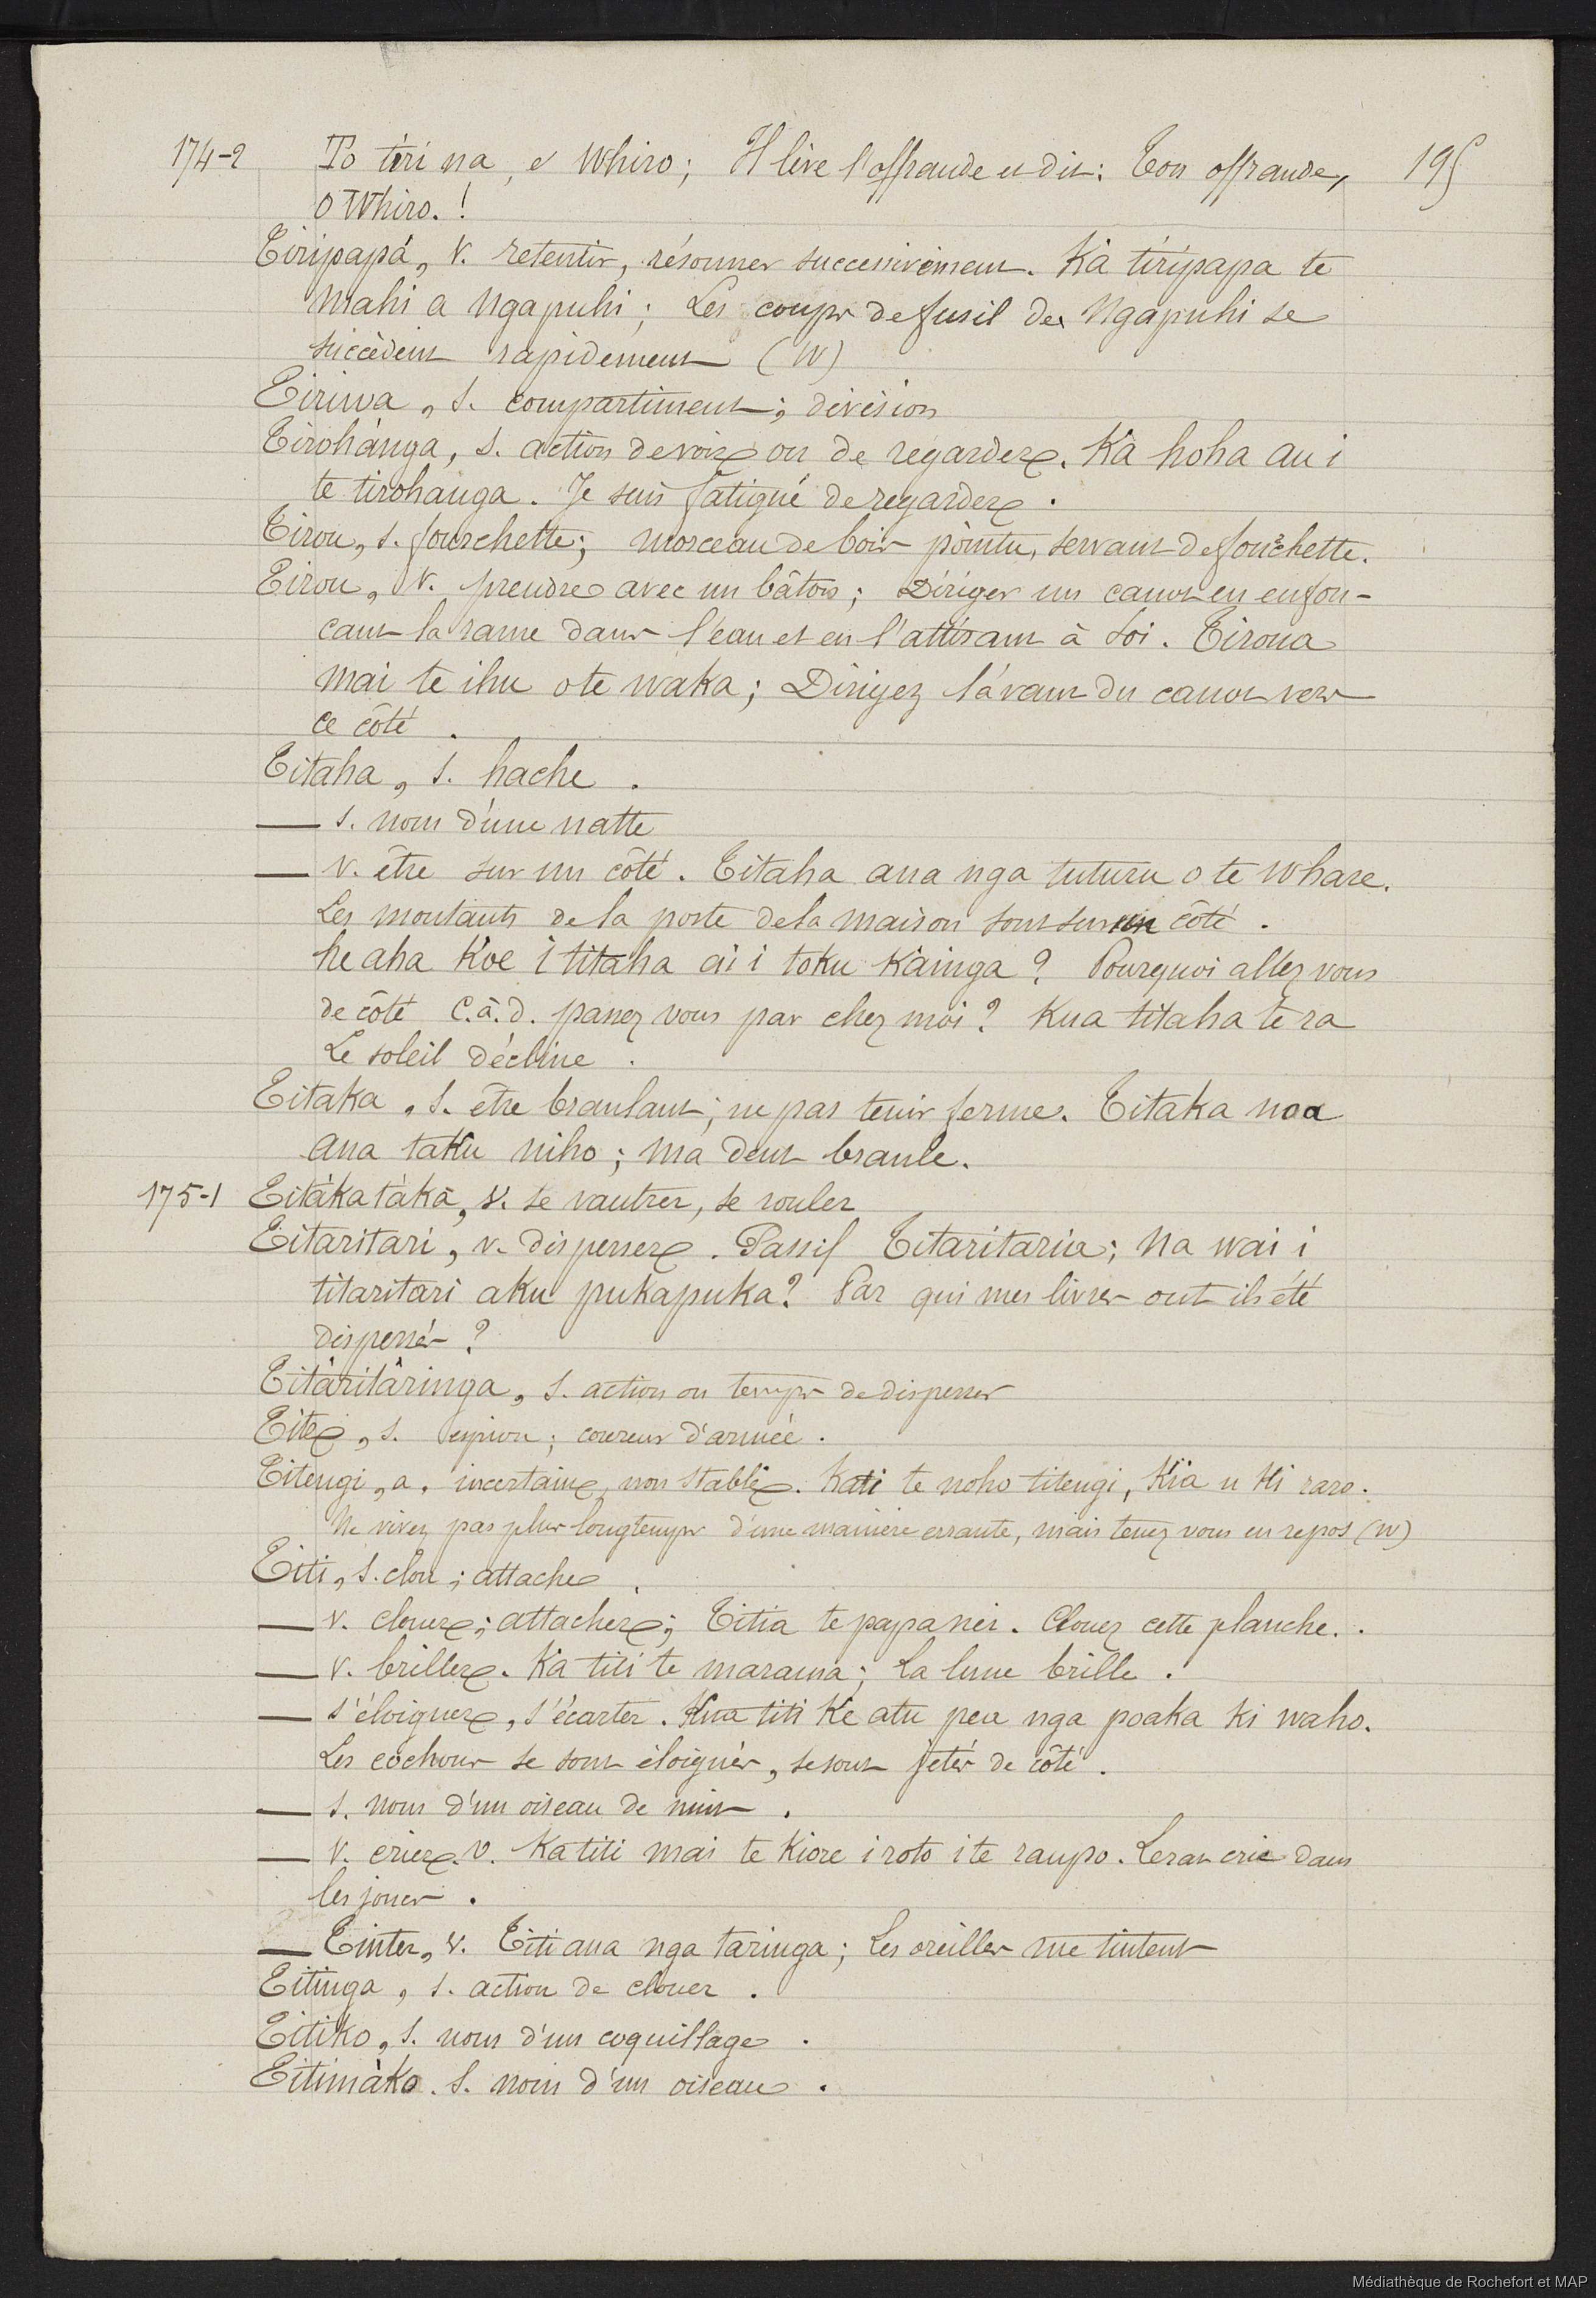 174-2 To tiri na, e Whiro; Il lève l'offrande et dit: Ton offrande, 195
O Whiro.!
Tiripapá, v. retentir, résonner successivement. Ka tiripapa te
mahi a Ngapuhi; Les coups de fusil des Ngapuhi se
succèdent rapidement (W)
Tiriwa, s. compartiment; division
Tirohánga, s. action de voir ou de regarder. Ka hoha au i
te tirohanga. Je suis fatigué de regarder.
Tirou, s. fourchette; morceau de bois pointu, servant de fourchette.
Tirou, v. prendre avec un bâton; Diriger un canot en enfon-
cant la rame dans l'eau et en l'attirant à soi. Tiroua
mai te ihu o te waka; Dirigez l'avant du canot vers
ce côté.
Titaha, s. hache.
— s. nom d'une natte
— v. être sur un côté. Titaha ana nga tuturu o te whare.
Les montants de la porte de la maison sont sur un côté.
he aha Koe i titaha ai i toku Kainga? Pourquoi allez vous
de côté c.à.d. passez vous par chez moi? Kua titaha te ra
Le soleil décline.
Titaka, s. être branlant; ne pas tenir ferme. Titaka noa
ana taku niho; ma dent branle.
175-1 Titákatáká, v. se vautrer, se rouler
Titaritari, v. disperser. Passif Titaritaria; Na wai i
titaritari aku pukapuka? Par qui mes livres ont ils été
dispersés?
Titâritâringa, s. action ou temps de disperser
Titei, s. espion; coureur d'armée.
Titengi, a. incertain, non stable. Kati te noho titengi, Kia u ki raro.
Ne vivez pas plus longtemps d'une manière errante, mais tenez vous en repos (W)
Titi, s. clou; attache.
— v. clouer; attacher; Titia te papa nei. Clouez cette planche..
— v. briller. Ka titi te marama; La lune brille.
— s'éloigner, s'écarter. Kua titi Ke atu pea nga poaka ki waho.
Les cochons se sont éloignés, se sont jetés de côté.
— s. nom d'un oiseau de nuit.
— v. crier. v. Ka titi mai te Kiore i roto i te raupo. Le rat crie dans
les joncs.
— Tinter, v. Titi ana nga taringa; Les oreilles me tintent
Titinga, s. action de clouer.
Titiko, s. nom d'un coquillage.
Titimàko. s. nom d'un oiseau.
Médiathèque de Rochefort et MAP